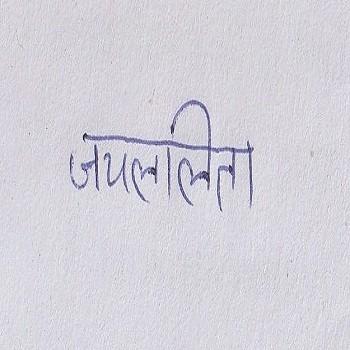 जयललिता